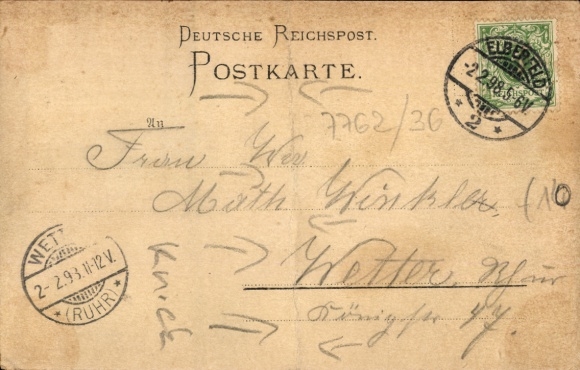 DEUTSCHE REICHSPOST.
POSTKARTE.
ELBERFELD
2.2.98. 5-6V.
* 2 *
7762/36
An
Frau Wwe
Math Winkler,
(10
WETTER
2-2.98.11-12V.
* (RUHR) *
Knick
Wetter, Ruhr
Königstr 47.